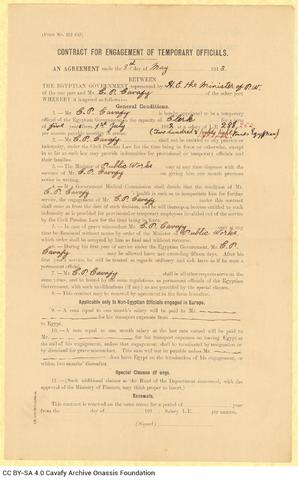 (Form No. 124 CS)
CONTRACT FOR ENGAGEMENT OF TEMPORARY OFFICIALS.
AN AGREEMENT made the day of May 1913.
BETWEEN
THE EGYPTIAN GOVERNMENT represented by H.E. the Minister of P.W.
of the one part and Mr. C. P. Cavafy of the other part
WHEREBY it is agreed as follows:—
General Conditions.
1.—Mr. C. P. Cavafy is hereby appointed to be a temporary
official of the Egyptian Government in the capacity of Clerk
from 1st July at a salary of L.E. 288
per annum payable monthly in arrear. (Two hundred & eighty eight Pounds Egyptian)
2.—Mr. C. P. Cavafy shall not be entitled to any pension or
indemnity, under the Civil Pension Law for the time being in force or otherwise, except
in so far as such law may provide indemnities for provisional or temporary officials and
their families.
3.—The Minister of Public Works may at any time dispense with the
service of Mr. C. P. Cavafy on giving him one month previous
notice in writing.
4.—If a Government Medical Commission shall decide that the condition of Mr.
C. P. Cavafy 's health is such as to incapacitate him for further
service, the engagement of Mr. C. P. Cavafy under this contract
shall cease as from the date of such decision, and he will thereupon become entitled to such
indemnity as is provided for provisional or temporary employees invalided out of the service
by the Civil Pension Law for the time being in force.
5.—In case of grave misconduct Mr. C. P. Cavafy may at any
time be dismissed without notice by order of the Minister of Public Works
which order shall be accepted by him as final and without recourse.
6.—During his first year of service under the Egyptian Government Mr. C. P.
Cavafy may be allowed leave not exceeding fifteen days. After his
first year's service, he will be treated as regards ordinary and sick leave as if he were a
permanent official.
7.—Mr. C. P. Cavafy shall in all other respects serve on the
same terms, and be bound by the same regulations, as permanent officials of the Egyptian
Government, with such modifications (if any) as are provided by the special clauses.
8.—This contract may be renewed by agreement in the form hereafter.
Applicable only to Non-Egyptian Officials engaged in Europe.
9.—A sum equal to one month's salary will be paid to Mr.
for his transport expenses from
to Egypt.
10.—A sum equal to one month salary at the last rate earned will be paid to
Mr. for his transport expenses on leaving Egypt at
the end of his engagement, unless that engagement shall be terminated by resignation or
by dismissal for grave misconduct. This sum will not be payable unless Mr.
does leave Egypt on the termination of his engagement, or
within two months thereafter.
Special Clauses (if any).
11.—(Such additional clauses as the Head of the Department concerned, with the
approval of the Ministry of Finance, may think proper to insert.)
Renewals.
This contract is renewed on the same terms for a period of year
from the day of 191 Salary L.E. per annum.
(Signed)
CC BY-SA 4.0 Cavafy Archive Onassis Foundation